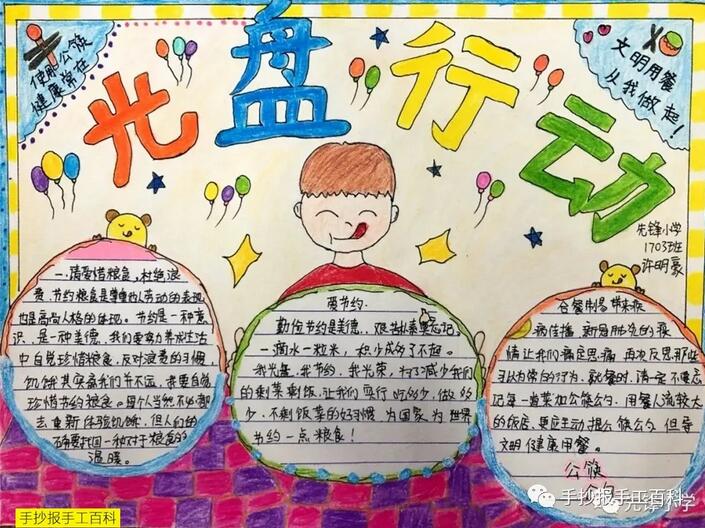 使用公筷
健康常在
光盘行动
文明用餐
从我做起！
先锋小学
1703班
许明豪
一.请爱惜粮食，杜绝浪
费.节约粮食是尊重他人劳动的表现
也是高尚人格的体现.节约是一种意
识,是一种美德,我们要努力养成生活
中自觉珍惜粮食,反对浪费的习惯
饥饿其实离我们并不远,我要自觉
珍惜节约粮食。
去重新体验饥饿,但人们的
温暖。
要节约.
勤俭节约是美德,
一滴水一粒米,积少成多了不起。
我光盘,我节约,我光荣,为了减少我们
的剩菜剩饭,让我们实行吃多少,做多
少,不剩饭菜的好习惯,为国家,为世界
节约一点粮食！
合餐制易带来疾
病传播,新冠肺炎的疫
情让我们痛定思痛,再次反思那些
习以为常的行为,就餐时,请一定不要忘
记每一道菜加公筷公勺,用餐人流较大
的饭店,更应主动提公筷公勺
文明健康用餐。
公筷
公勺
手抄报手工百科
手抄报手工百科
先锋小学